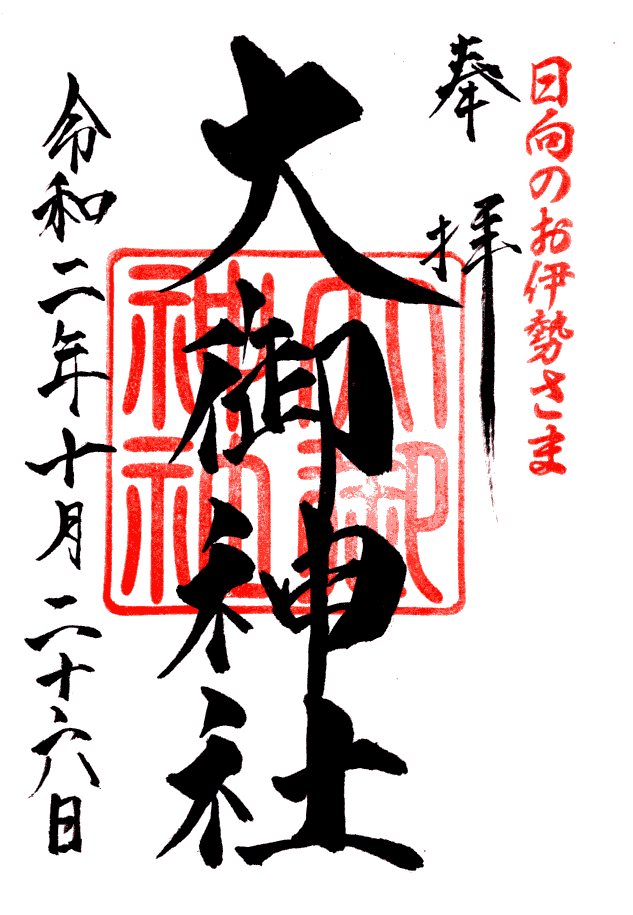 日向のお伊勢さま
奉拝
大御神社
大御
神社
令和二年十月二十六日